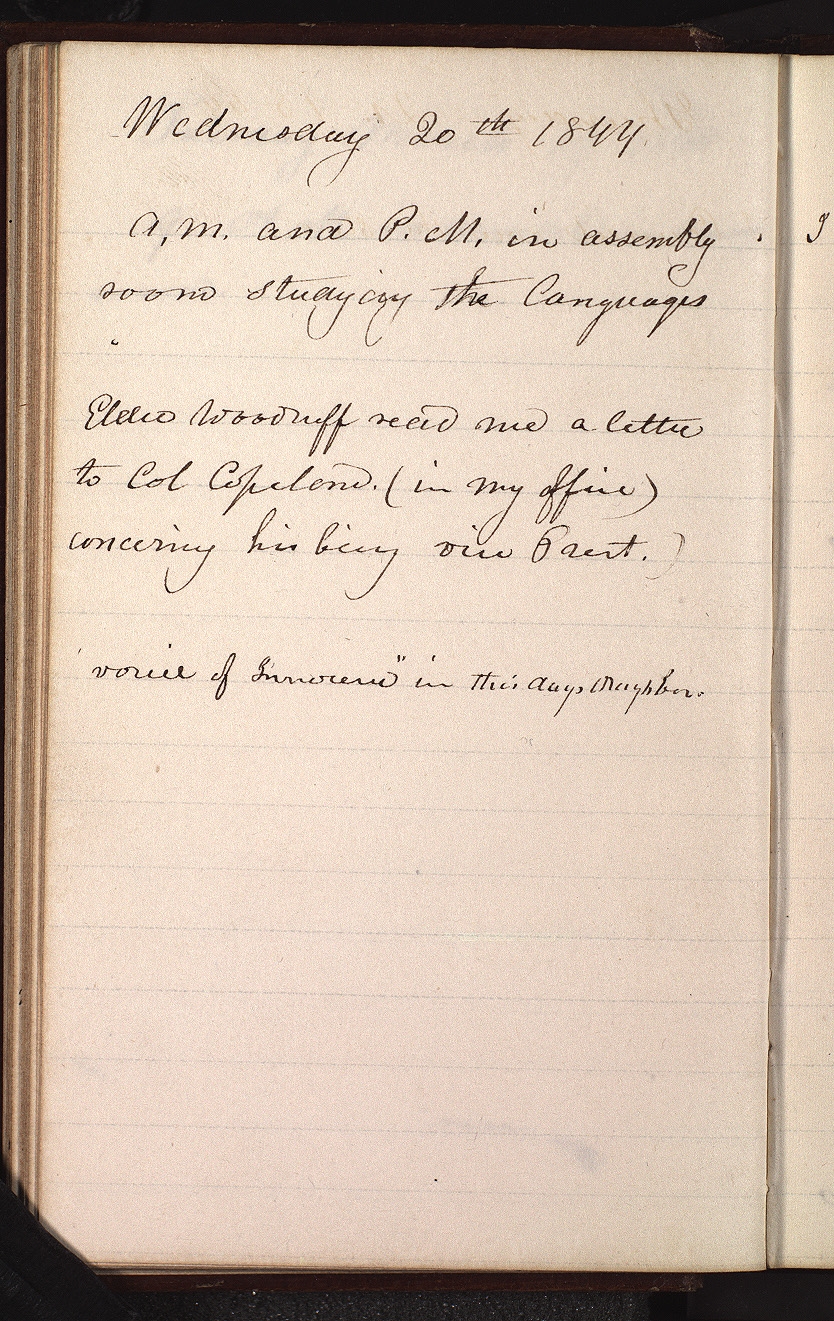 Wednesday 20th 1844.
A,M. and P.M. in assembly
room studying the Languages
Elder Woodruff read me a letter
to Col Copeland. (in my office)
concering his being vice Prest.)
voice of Innocence" in this days Neighbor.